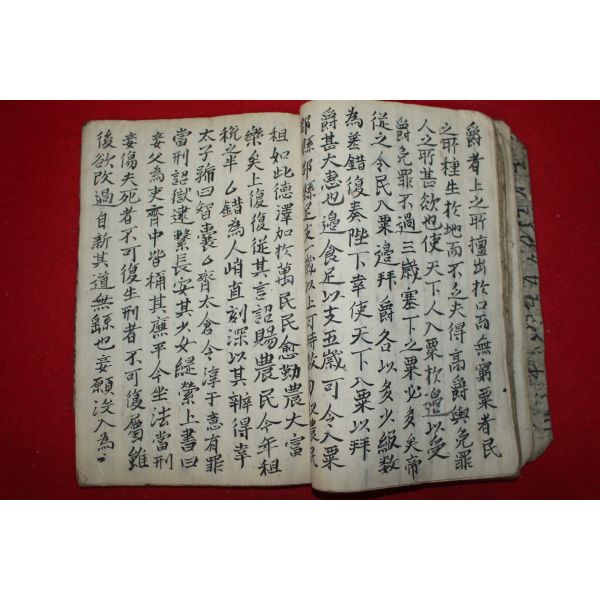 爵者上之所擅出於口而無窮粟者民
之所種生於地而不乏夫得高爵與免罪
人之所甚欲也使天下人入粟於邊以受
爵免罪不過三歲塞下之粟必多矣帝
從之令民入粟邊拜爵各以多少級數
為差錯復奏陛下幸使天下入粟以拜
爵甚大惠也邊食足以支五歲可令入粟
郡縣郡縣足支一歲以上可時赦勿收農民
租如此德澤加於萬民民愈勤農大富
樂矣上復從其言詔賜農民今年租
稅之半錯為人峭直刻深以其辯得幸
太子號曰智囊齊太倉令淳于意有罪
當刑詔獄逮繫長安其少女緹縈上書曰
妾父為吏齊中皆稱其廉平今坐法當刑
妾傷夫死者不可復生刑者不可復屬雖
後欲改過自新其道無繇也妾願沒入為